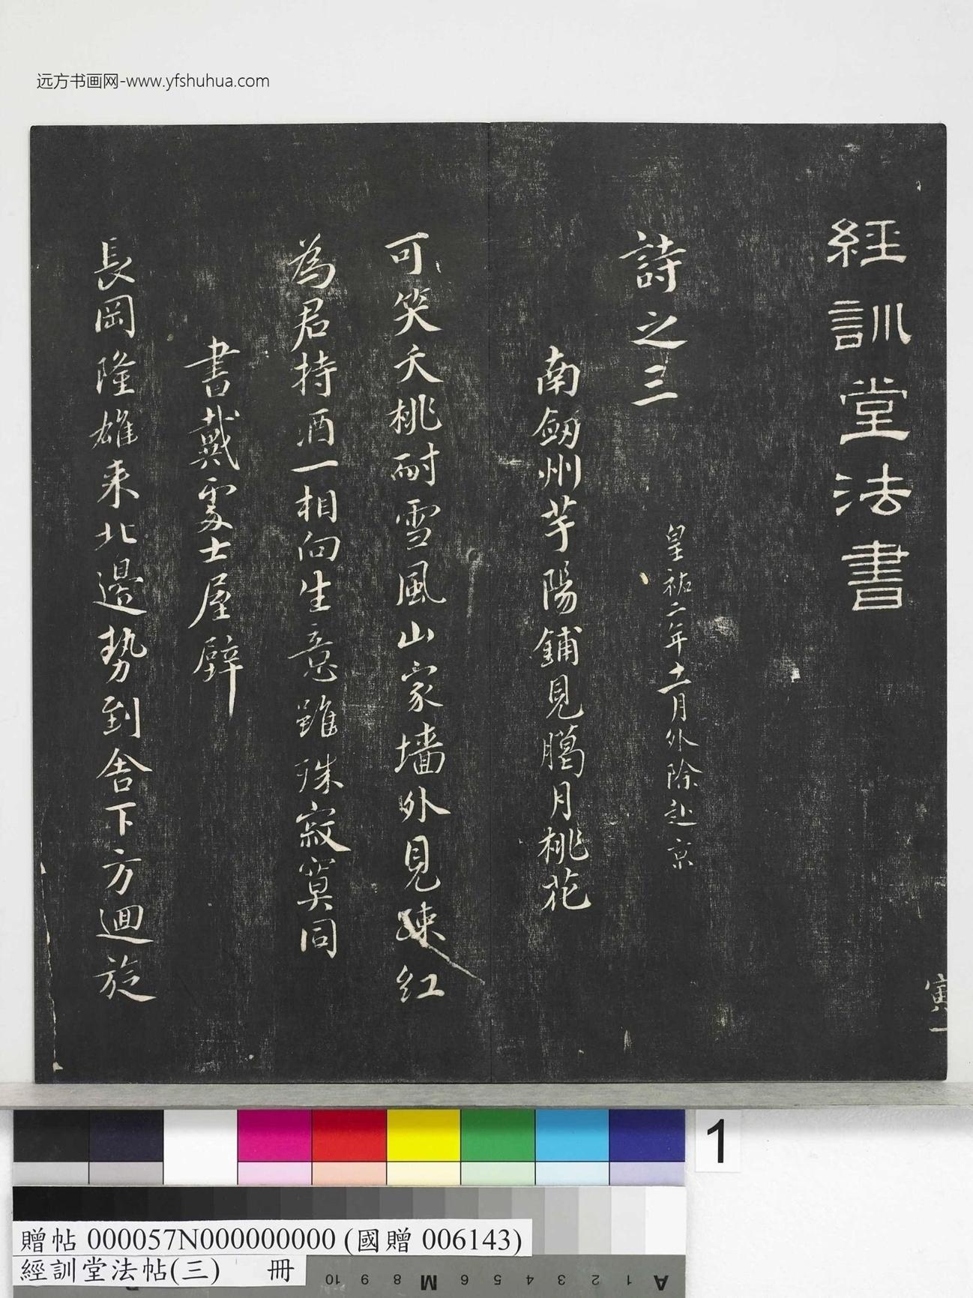 远方书画网-www.yfshuhua.com
經訓堂法書
寅一
詩之三
皇祐二年十一月外除赴京
南劒州芋陽鋪見臈月桃花
可笑夭桃耐雪風山家墻外見疎紅
為君持酒一相向生意雖殊寂寞同
書戴處士屋壁
長岡隆雄来北邊勢到舍下方迴旋
1
贈帖 000057N000000000 (國贈 006143)
經訓堂法帖(三) 冊
A 1 2 3 4 5 6 M 8 9 10